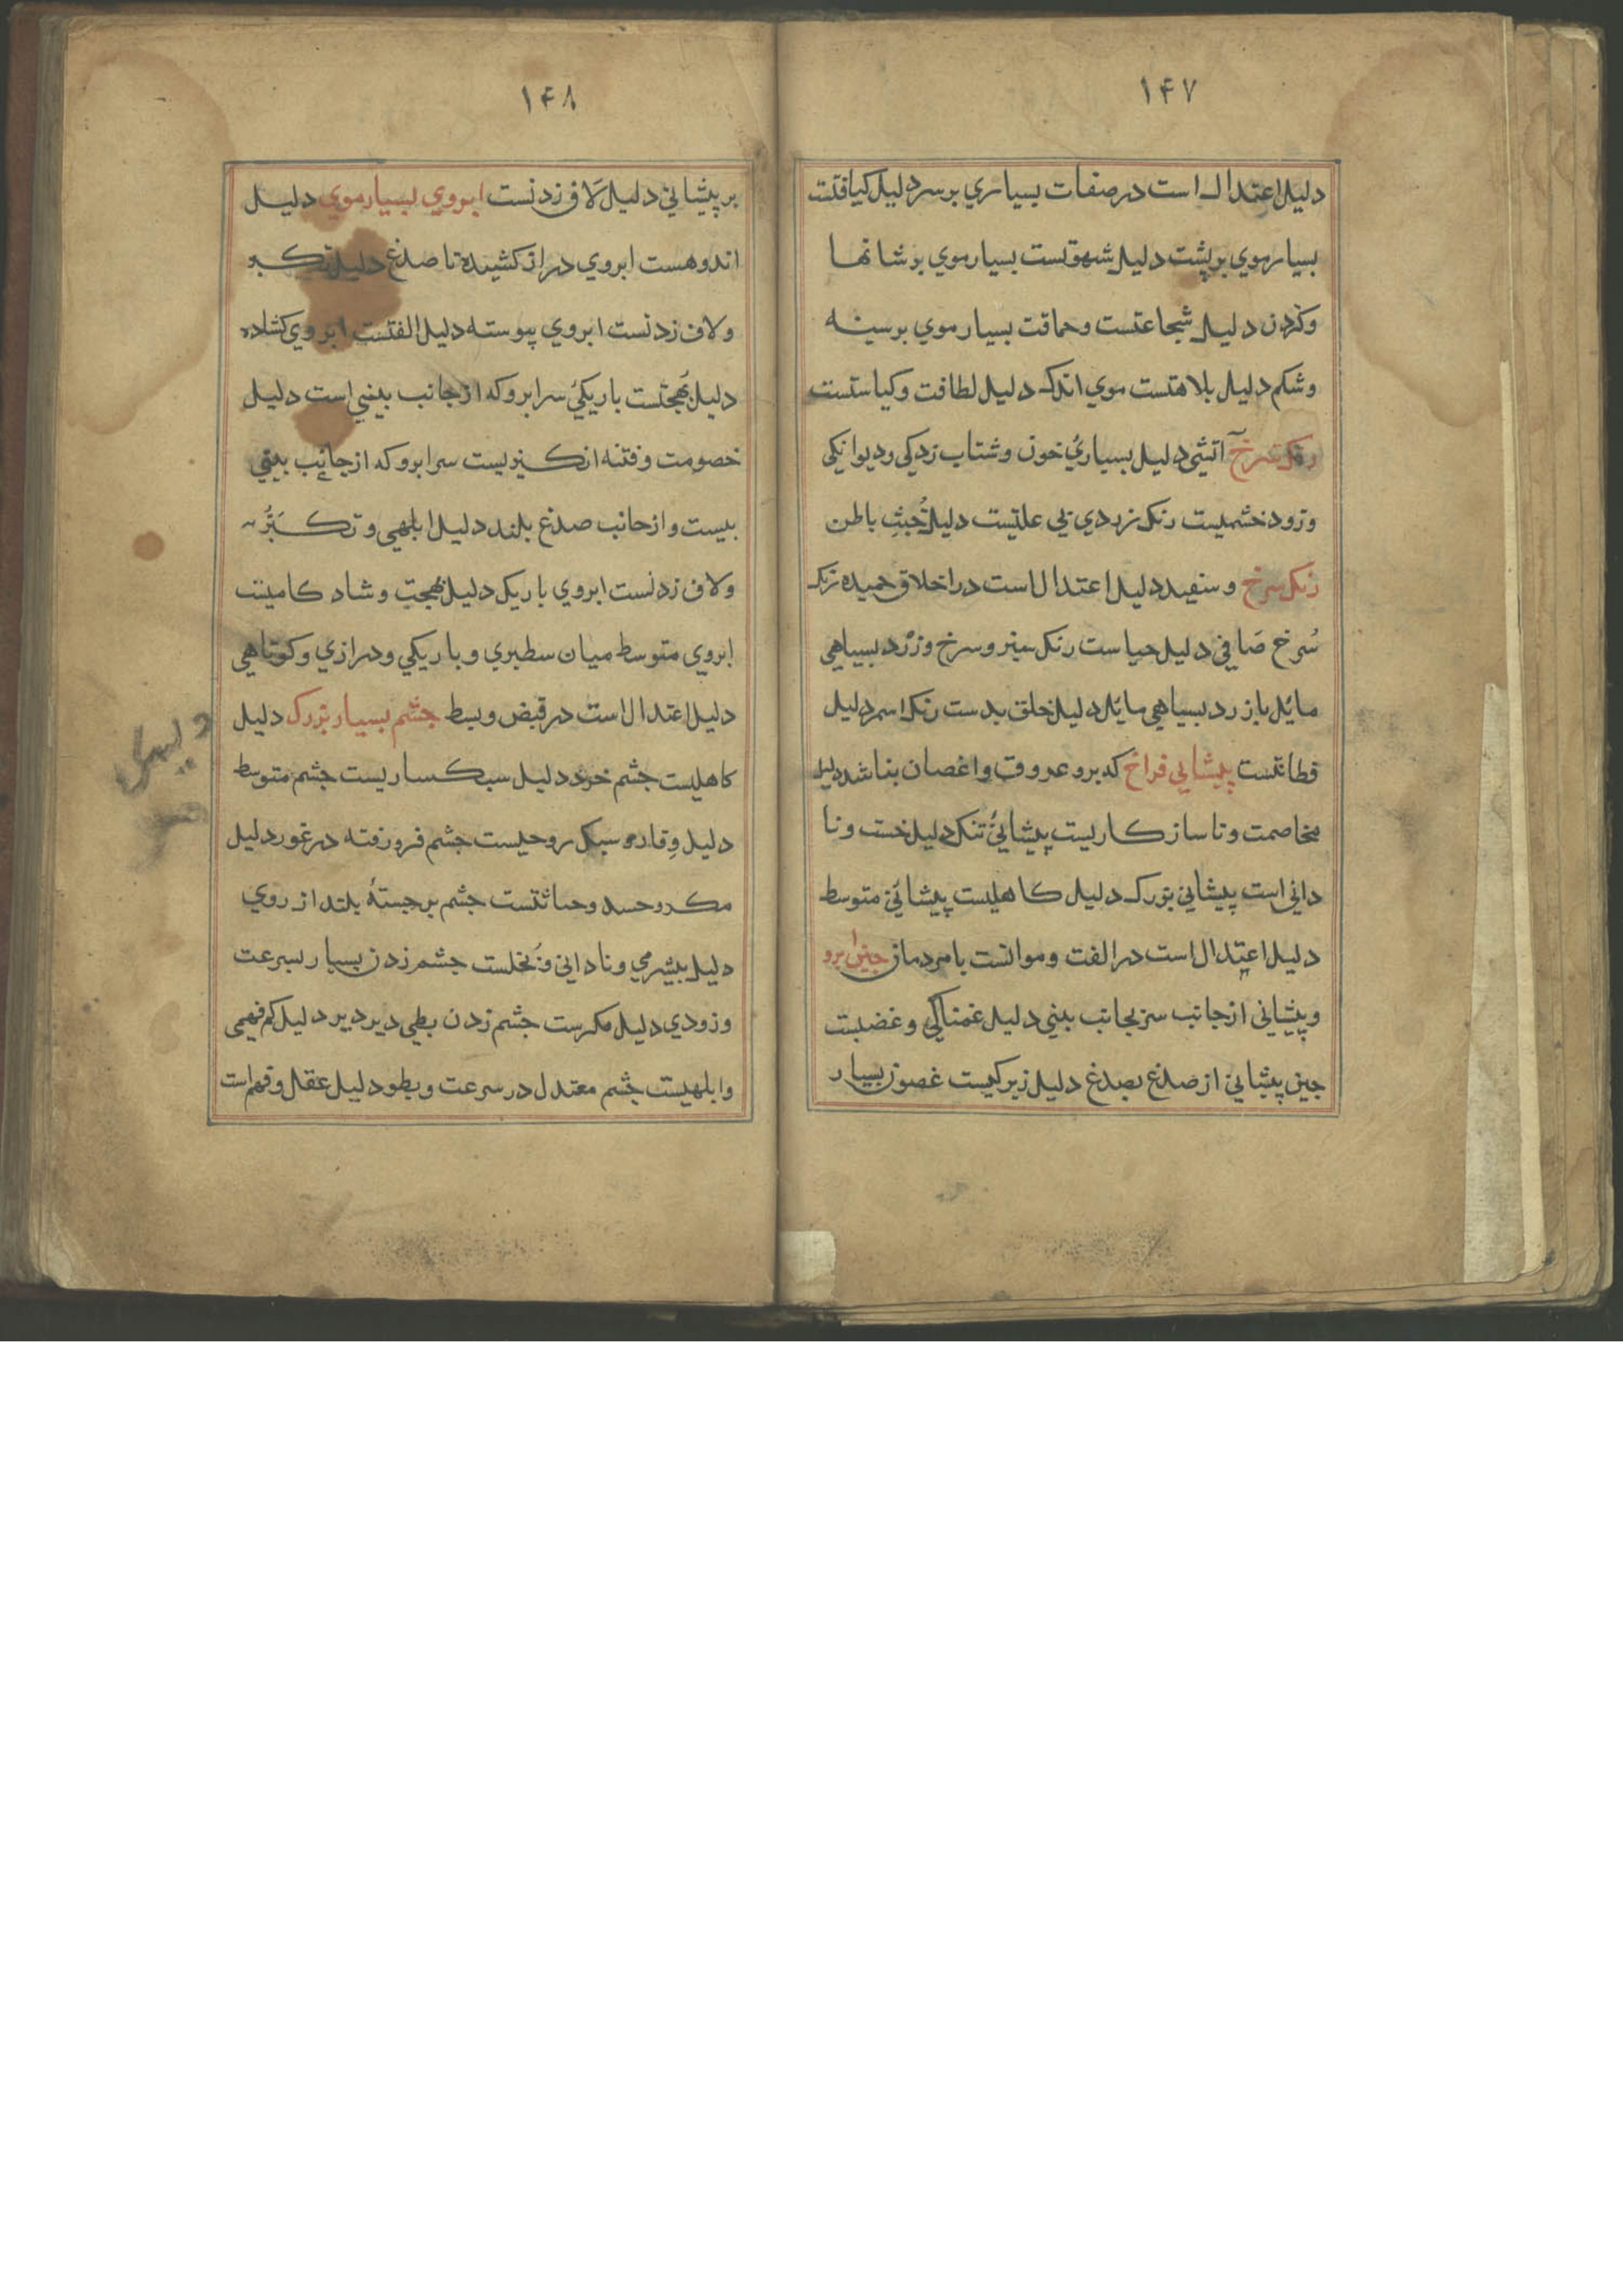 ۱۴۷
دلیل اعتدال است در صفات بسیاري بر سر دلیل کیافتست
بسیار موي بر پشت دلیل شهوتست بسیار موي بر شانها
وکردن دلیل شجاعتست وحماقت بسیار موي بر سینه
وشکم دلیل بلاهتست موي اندک دلیل لطافت وکیاستست
رنک سرخ آتشی دلیل بسیاريُ خون وشتاب زدکی ودیوانکی
وزود خشمیست رنک زردي بی علتیست دلیل خُبثِ باطن
رنک سرخ وسفید دلیل اعتدال است در اخلاق حمیده رنک
سُرخ صَافی دلیل حیاست رنک سبز وسرخ وزرْد بسیاهی
مائل یا زرد بسیاهی مائل دلیل خلق بدست رنک اسمر دلیل
فطانتست پیشانی فراخ که برو عروق واغصان بناشد دلیل
مخاصمت وناسازکاریست پیشانیُ تنک دلیل خست ونا
دانی است پیشانی بزرک دلیل کاهلیست پیشانیُ متوسط
دلیل اعتِدال است در الفت وموانست با مردمان جینِ ابرو
وپیشانی از جانب سر بجانب بینی دلیل غمناکی وغضبست
جین پیشانی از صدغ بصدغ دلیل زیرکیست غصون بسیار
۱۴۸
بر پیشانی دلیل لَاف زدنست ابروي بسیار موي دلیل
اندوهست ابروي دراز کشیده تا صدغ دلیل تکبر
ولاف زدنست ابروي پیوسته دلیل الفتست ابروي کشاده
دلیل بَهجتست باریکيُ سر ابرو که از جانب بینی است دلیل
خصومت وفتنه انکیزیست سر ابرو که از جانِب بینی
بیست واز جانب صدغ بلند دلیل ابلهی وتکَبُّر
ولاف زدنست ابروي باریک دلیل بهجت وشادکامیست
ابروي متوسط میان سطبري وباریکي ودرازي وکوتاهي
دلیل اعتدال است در قبض وبسط چشم بسیار بزرک دلیل
کاهلیست چشم خرد دلیل سبکساریست چشم متوسط
دلیل وِقار و سبک روحیست چشم فرو رفته در غور دلیل
مکر وحسد وخباثتست چشم برجستهٔ بلند از روي
دلیل بیشرمي ونادانی وبُخلست چشم زدن بسیار بسرعت
وزودي دلیل مکرست چشم زدن بطی دیر دیر دلیل کم فهمی
وابلهیست چشم معتدل در سرعت وبطو دلیل عقل وفهم است